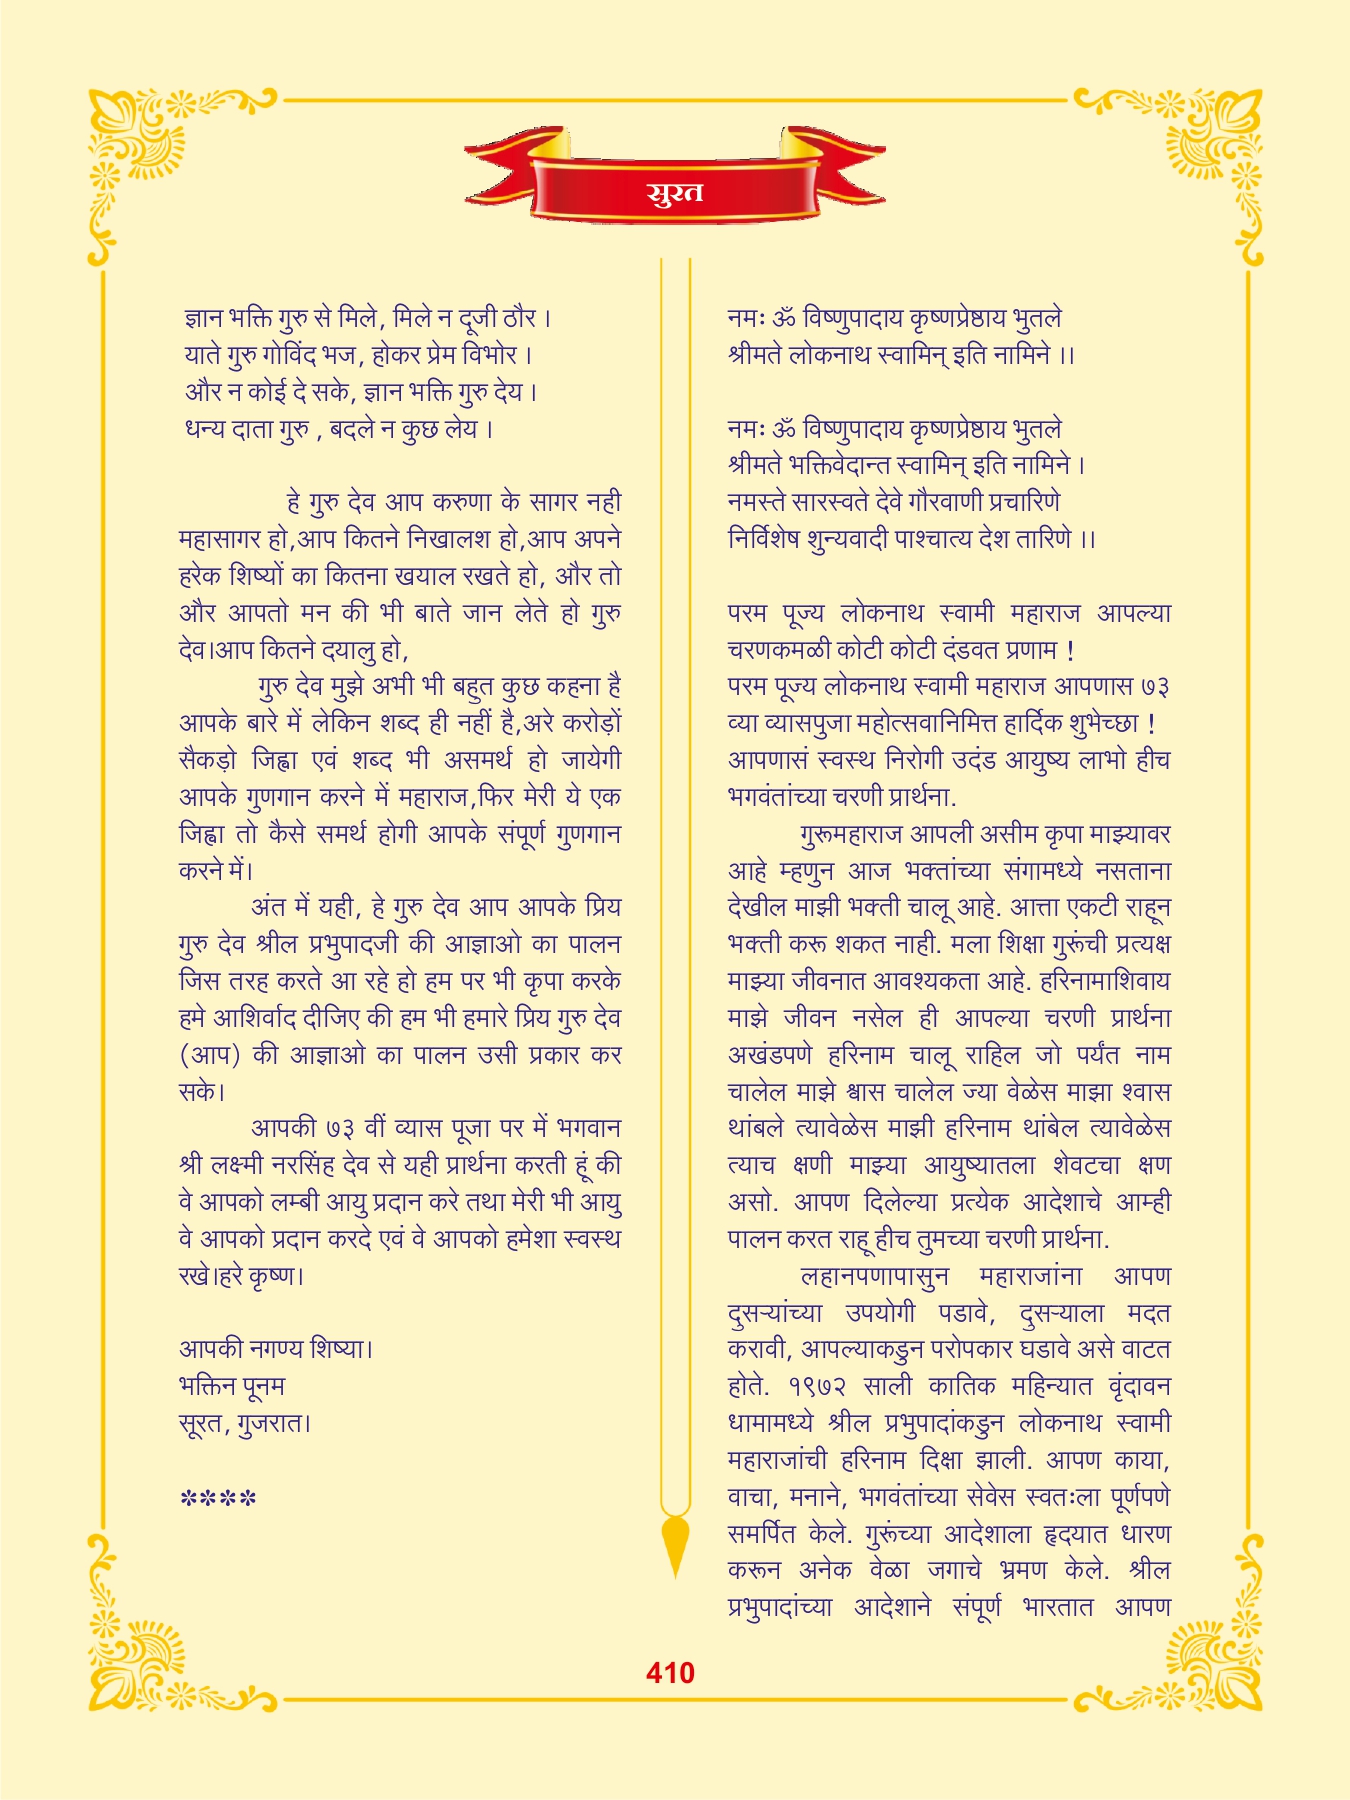 सुरत
ज्ञान भक्ति गुरु से मिले, मिले न दूजी ठौर ।
याते गुरु गोविंद भज, होकर प्रेम विभोर ।
और न कोई दे सके, ज्ञान भक्ति गुरु देय ।
धन्य दाता गुरु , बदले न कुछ लेय ।
हे गुरु देव आप करुणा के सागर नही
महासागर हो,आप कितने निखालश हो,आप अपने
हरेक शिष्यों का कितना खयाल रखते हो, और तो
और आपतो मन की भी बाते जान लेते हो गुरु
देव।आप कितने दयालु हो,
गुरु देव मुझे अभी भी बहुत कुछ कहना है
आपके बारे में लेकिन शब्द ही नहीं है,अरे करोड़ों
सैकड़ो जिह्वा एवं शब्द भी असमर्थ हो जायेगी
आपके गुणगान करने में महाराज,फिर मेरी ये एक
जिह्वा तो कैसे समर्थ होगी आपके संपूर्ण गुणगान
करने में।
अंत में यही, हे गुरु देव आप आपके प्रिय
गुरु देव श्रील प्रभुपादजी की आज्ञाओ का पालन
जिस तरह करते आ रहे हो हम पर भी कृपा करके
हमे आशिर्वाद दीजिए की हम भी हमारे प्रिय गुरु देव
(आप) की आज्ञाओ का पालन उसी प्रकार कर
सके।
आपकी ७३ वीं व्यास पूजा पर में भगवान
श्री लक्ष्मी नरसिंह देव से यही प्रार्थना करती हूं की
वे आपको लम्बी आयु प्रदान करे तथा मेरी भी आयु
वे आपको प्रदान करदे एवं वे आपको हमेशा स्वस्थ
रखे।हरे कृष्ण।
आपकी नगण्य शिष्या।
भक्तिन पूनम
सूरत, गुजरात।
****
नमः ॐ विष्णुपादाय कृष्णप्रेष्ठाय भुतले
श्रीमते लोकनाथ स्वामिन् इति नामिने ।।
नमः ॐ विष्णुपादाय कृष्णप्रेष्ठाय भुतले
श्रीमते भक्तिवेदान्त स्वामिन् इति नामिने ।
नमस्ते सारस्वते देवे गौरवाणी प्रचारिणे
निर्विशेष शुन्यवादी पाश्चात्य देश तारिणे ।।
परम पूज्य लोकनाथ स्वामी महाराज आपल्या
चरणकमळी कोटी कोटी दंडवत प्रणाम !
परम पूज्य लोकनाथ स्वामी महाराज आपणास ७३
व्या व्यासपुजा महोत्सवानिमित्त हार्दिक शुभेच्छा !
आपणासं स्वस्थ निरोगी उदंड आयुष्य लाभो हीच
भगवंतांच्या चरणी प्रार्थना.
गुरूमहाराज आपली असीम कृपा माझ्यावर
आहे म्हणुन आज भक्तांच्या संगामध्ये नसताना
देखील माझी भक्ती चालू आहे. आत्ता एकटी राहून
भक्ती करू शकत नाही. मला शिक्षा गुरूंची प्रत्यक्ष
माझ्या जीवनात आवश्यकता आहे. हरिनामाशिवाय
माझे जीवन नसेल ही आपल्या चरणी प्रार्थना
अखंडपणे हरिनाम चालू राहिल जो पर्यंत नाम
चालेल माझे श्वास चालेल ज्या वेळेस माझा श्वास
थांबले त्यावेळेस माझी हरिनाम थांबेल त्यावेळेस
त्याच क्षणी माझ्या आयुष्यातला शेवटचा क्षण
असो. आपण दिलेल्या प्रत्येक आदेशाचे आम्ही
पालन करत राहू हीच तुमच्या चरणी प्रार्थना.
लहानपणापासुन महाराजांना आपण
दुसऱ्यांच्या उपयोगी पडावे, दुसऱ्याला मदत
करावी, आपल्याकडुन परोपकार घडावे असे वाटत
होते. १९७२ साली कातिक महिन्यात वृंदावन
धामामध्ये श्रील प्रभुपादांकडुन लोकनाथ स्वामी
महाराजांची हरिनाम दिक्षा झाली. आपण काया,
वाचा, मनाने, भगवंतांच्या सेवेस स्वतःला पूर्णपणे
समर्पित केले. गुरूंच्या आदेशाला हृदयात धारण
करून अनेक वेळा जगाचे भ्रमण केले. श्रील
प्रभुपादांच्या आदेशाने संपूर्ण भारतात आपण
410